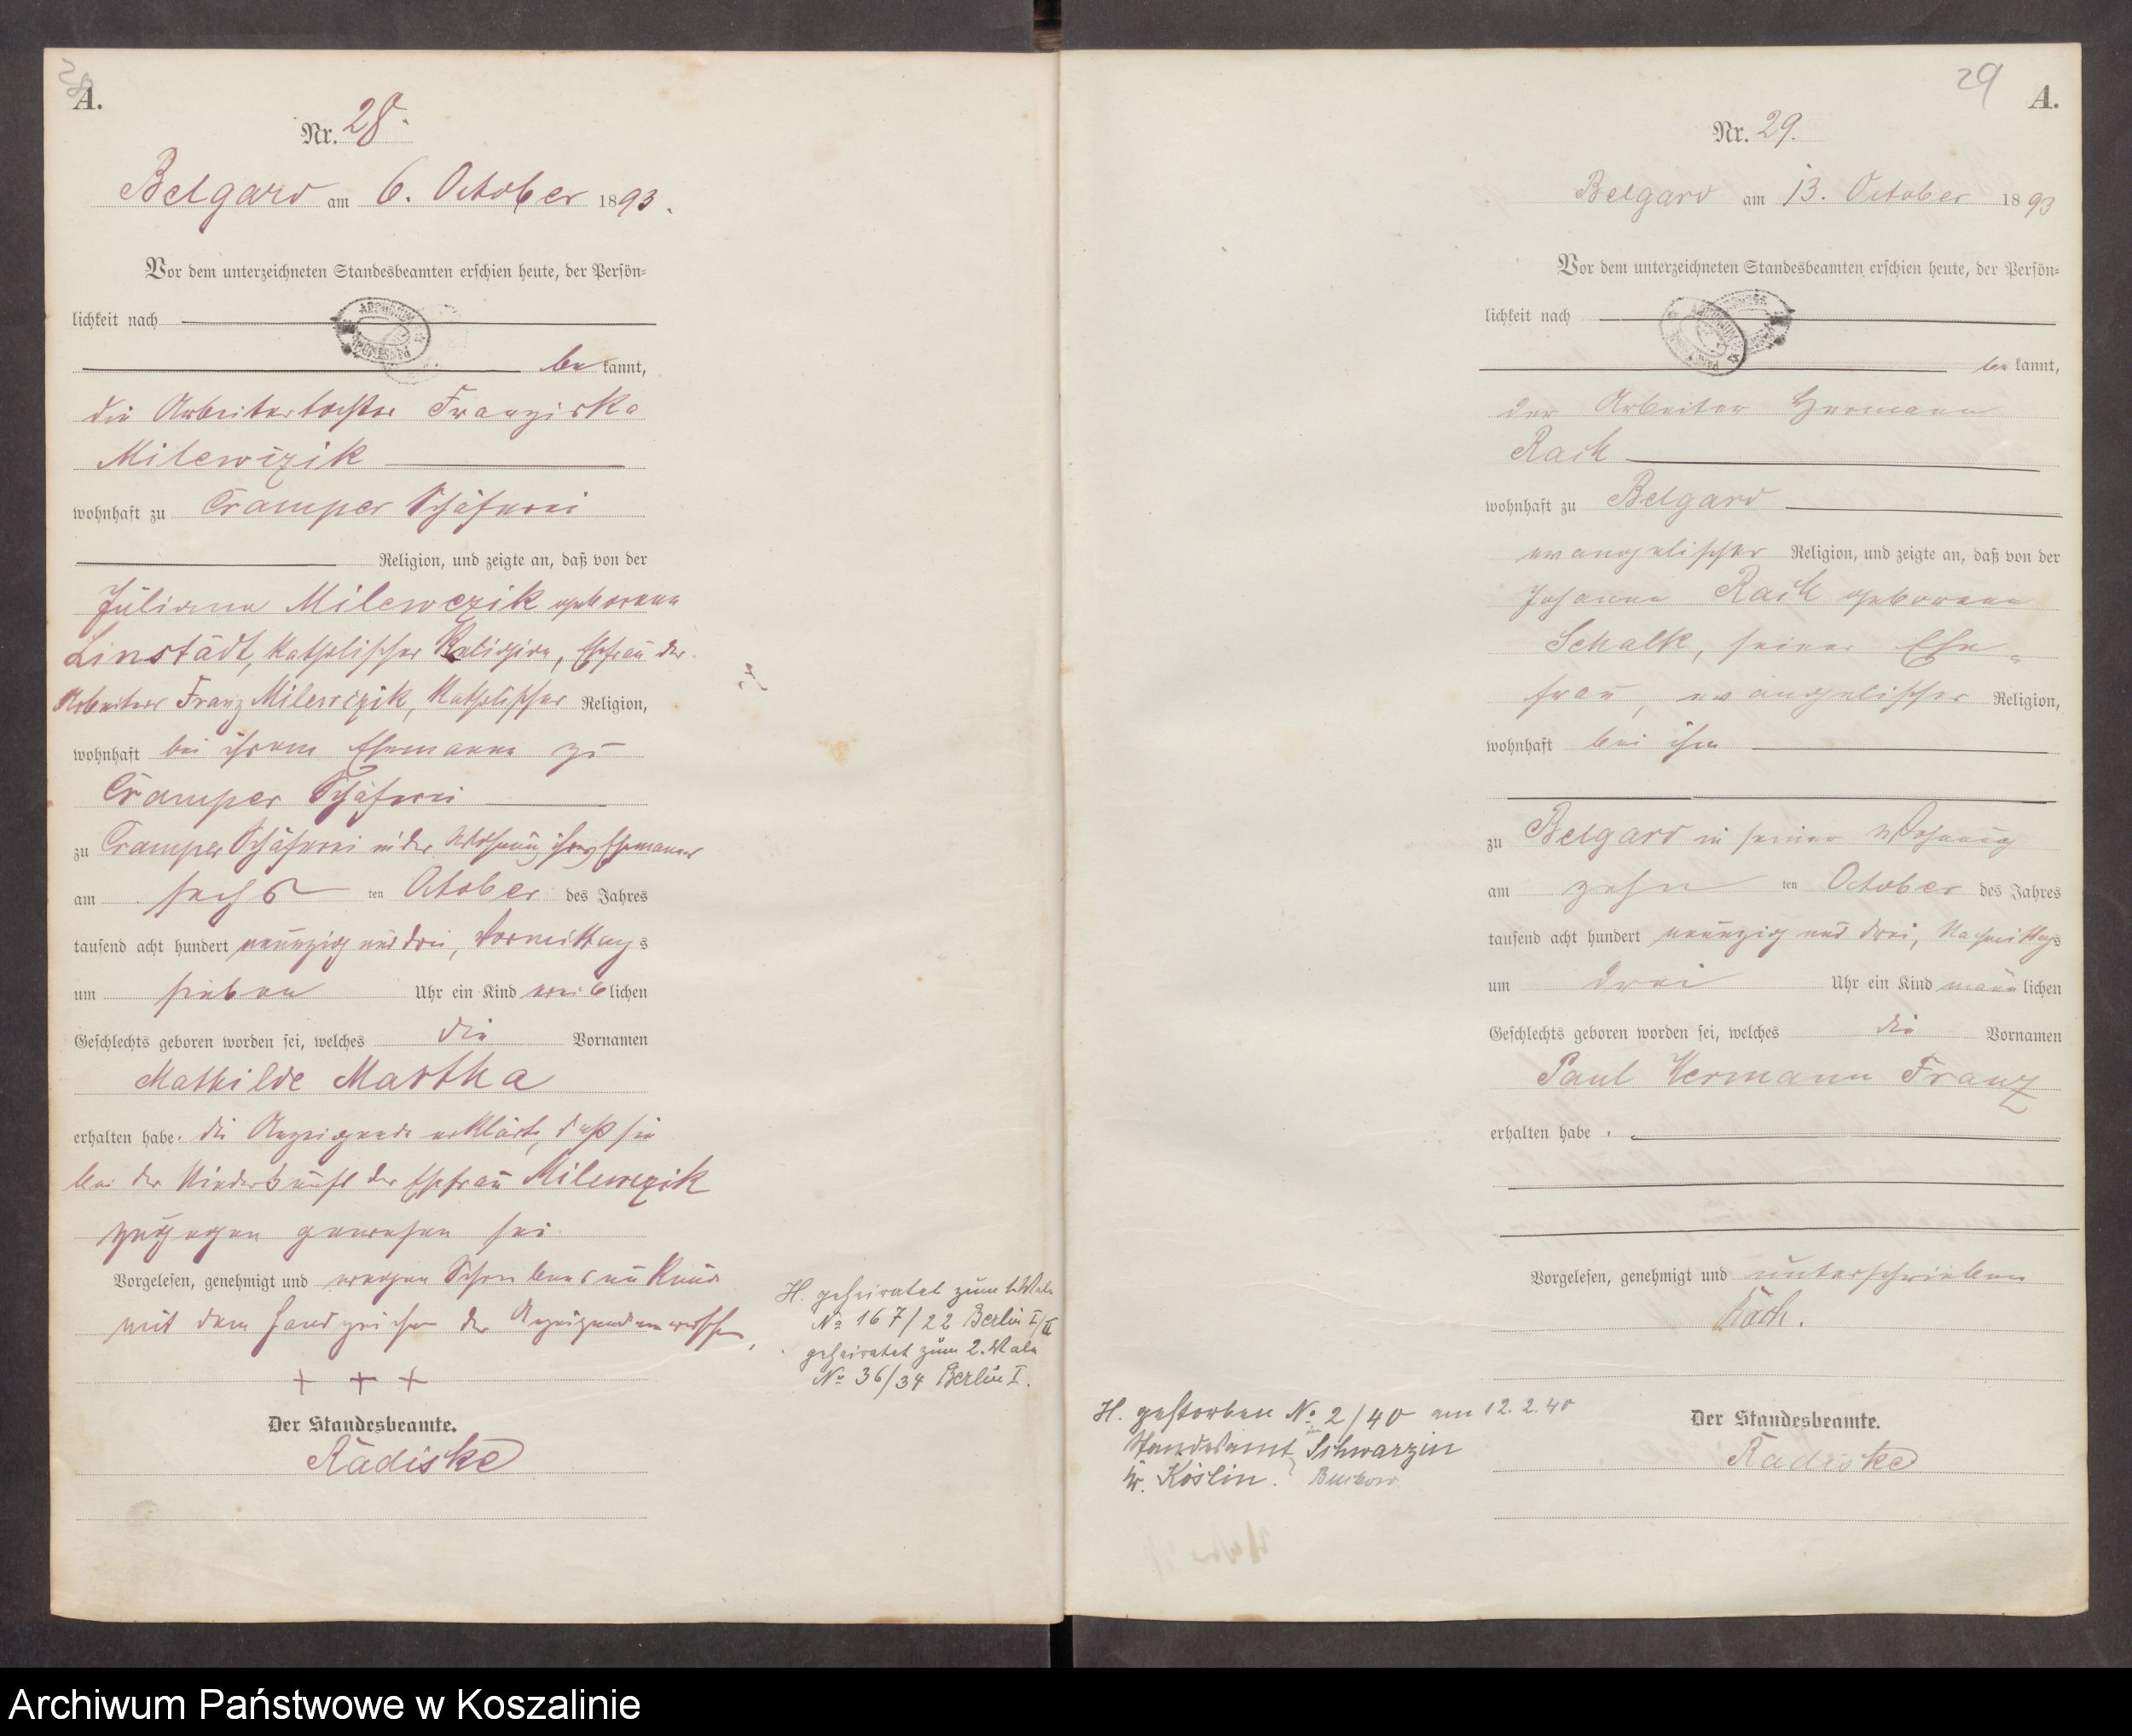 28
A.
Nr. 28.
Belgard am 6. October 1893.
Vor dem unterzeichneten Standesbeamten erschien heute, der Persön=
lichkeit nach
be kannt,
die Arbeitertochter Franziska
Milewczik
wohnhaft zu Cramper Schäferei
Religion, und zeigte an, daß von der
Juliane Milewczik geborene
Linstädt, katholischer Religion, Ehefrau des
Arbeiters Franz Milewczik, katholischer Religion,
wohnhaft bei ihrem Ehemanne zu
Cramper Schäferei
zu Cramper Schäferei in der Wohnung ihres Ehemannes
am sechs ten October des Jahres
tausend acht hundert neunzig und drei, Vormittags
um sieben Uhr ein Kind weiblichen
Geschlechts geboren worden sei, welches die Vornamen
Mathilde Martha
erhalten habe. Die Anzeigende erklärte, daß sie
bei der Niederkunft der Ehefrau Milewczik
zugegen gewesen sei
Vorgelesen, genehmigt und wegen Schreibensunkunde
mit dem Handzeichen der Anzeigenden versehen,
+ + +
Der Standesbeamte.
Radiske
H. geheiratet zum 1. Male
No 167/22 Berlin I/II
geheiratet zum 2. Male
No 36/34 Berlin I.
29
A.
Nr. 29.
Belgard am 13. October 1893
Vor dem unterzeichneten Standesbeamten erschien heute, der Persön=
lichkeit nach
be kannt,
der Arbeiter Hermann
Rach
wohnhaft zu Belgard
evangelischer Religion, und zeigte an, daß von der
Johanne Rach geborene
Schalk, seiner Ehe=
frau, evangelischer Religion,
wohnhaft bei ihm
zu Belgard in seiner Wohnung
am zehn ten October des Jahres
tausend acht hundert neunzig und drei, Nachmittags
um drei Uhr ein Kind männlichen
Geschlechts geboren worden sei, welches die Vornamen
Paul Hermann Franz
erhalten habe.
Vorgelesen, genehmigt und unterschrieben
Rach.
Der Standesbeamte.
Radiske
H. gestorben No 2/40 am 12.2.40
Standesamt Schwarzin
Kr. Köslin. Buckow
Archiwum Państwowe w Koszalinie